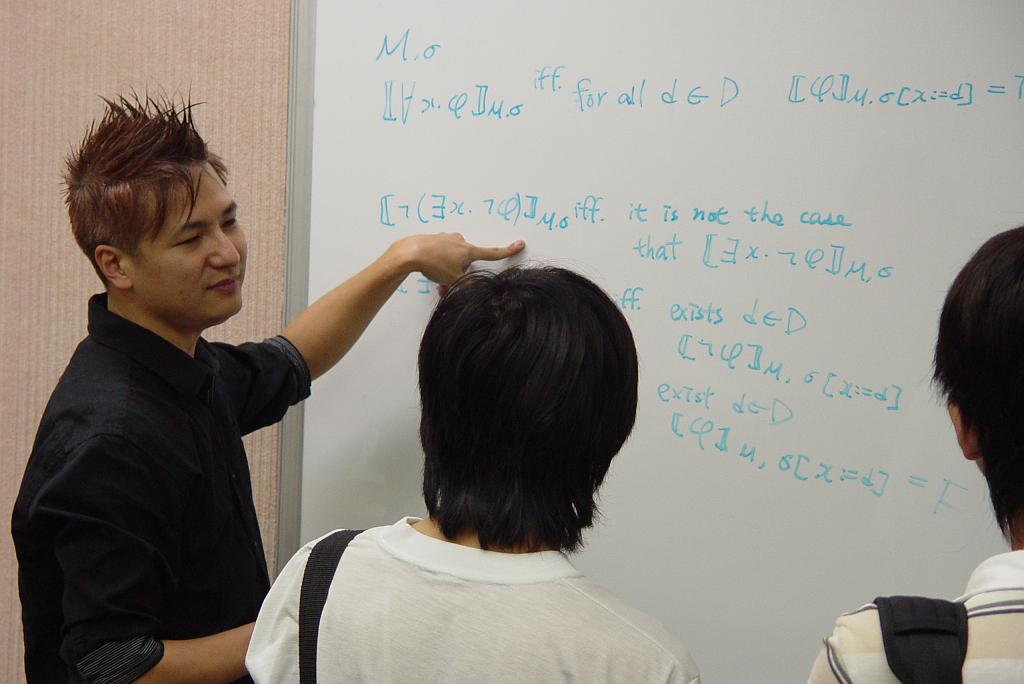 M,σ
⟦∀x.φ⟧M,σ iff. for all d∈D ⟦φ⟧M,σ[x:=d] = T
⟦¬(∃x.¬φ)⟧M,σ iff. it is not the case
that ⟦∃x.¬φ⟧M,σ
iff. exists d∈D
⟦¬φ⟧M,σ[x:=d]
exist d∈D
⟦φ⟧M,σ[x:=d] = F